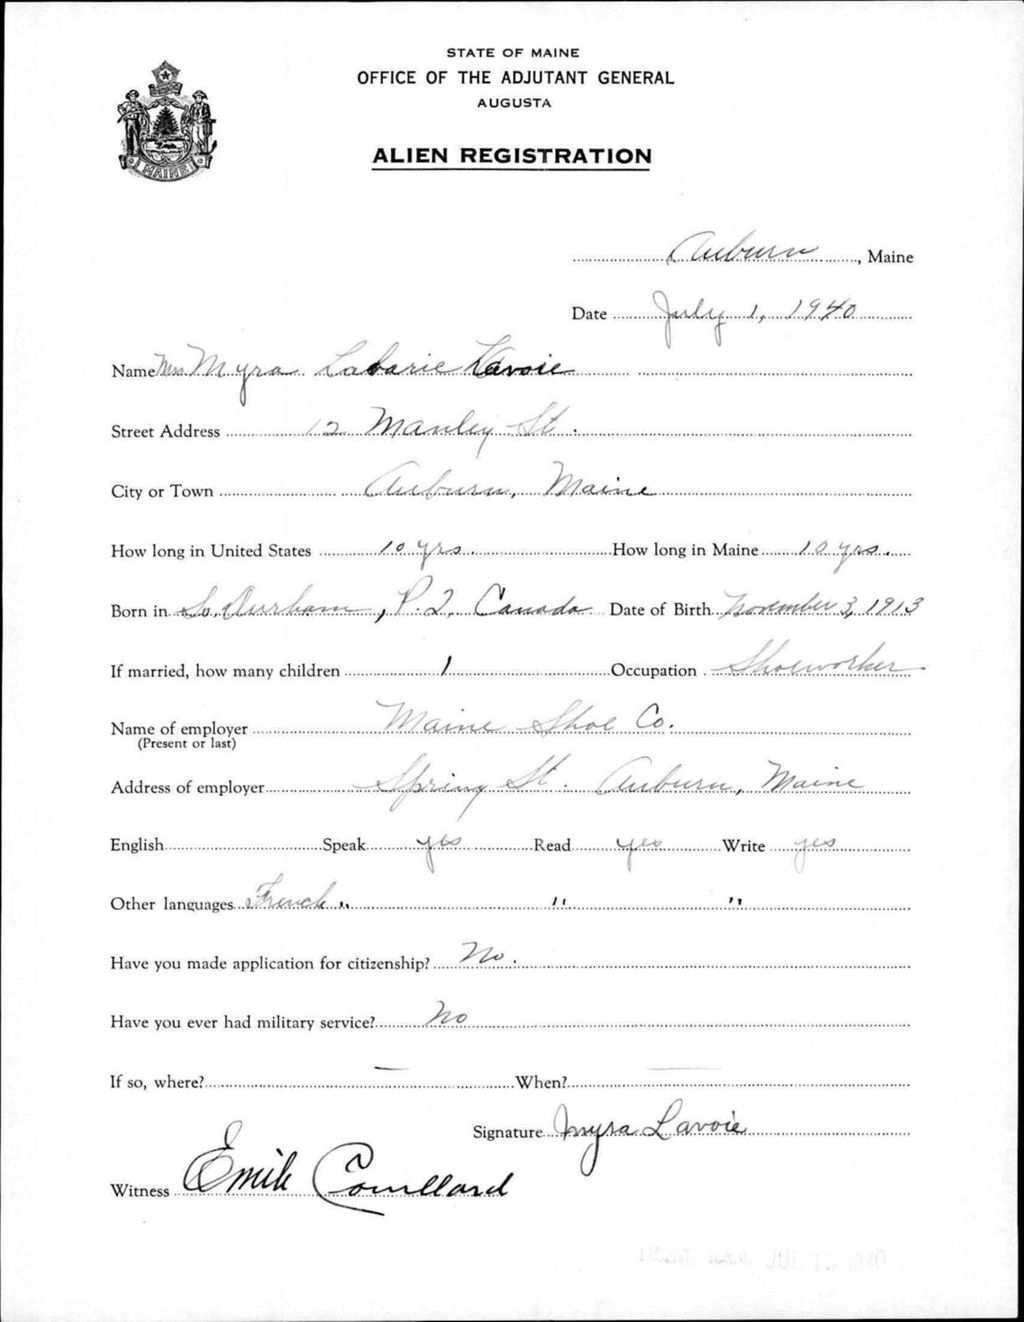 STATE OF MAINE
OFFICE OF THE ADJUTANT GENERAL
AUGUSTA
ALIEN REGISTRATION
MAINE
Auburn, Maine
Date July 1, 1940
Name Mrs Myra Lavoie
Street Address 12 Manley St.
City or Town Auburn, Maine
How long in United States 10 yrs. How long in Maine 10 yrs.
Born in So. Durham, P.Q. Canada Date of Birth November 3, 1913
If married, how many children 1 Occupation Shoeworker
Name of employer Maine Shoe Co.
(Present or last)
Address of employer Spring St. Auburn, Maine
English Speak yes Read yes Write yes
Other languages French " " "
Have you made application for citizenship? No.
Have you ever had military service? No
If so, where? — When? —
Signature Myra Lavoie
Witness Emile Couillard